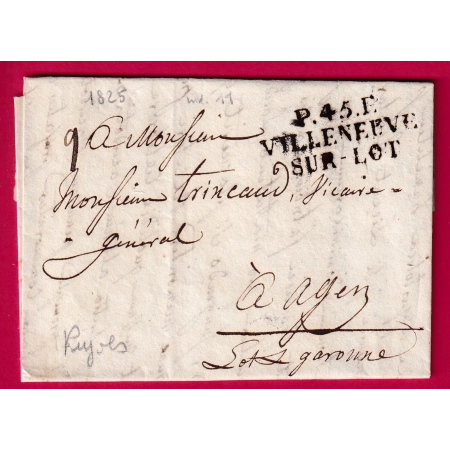 1825
ind. 11
P.45.P.
VILLENEUVE
SUR-LOT
A Monsieur
Monsieur trincaud, Vicaire-
-général
à agen
Lot & garonne
Pujols